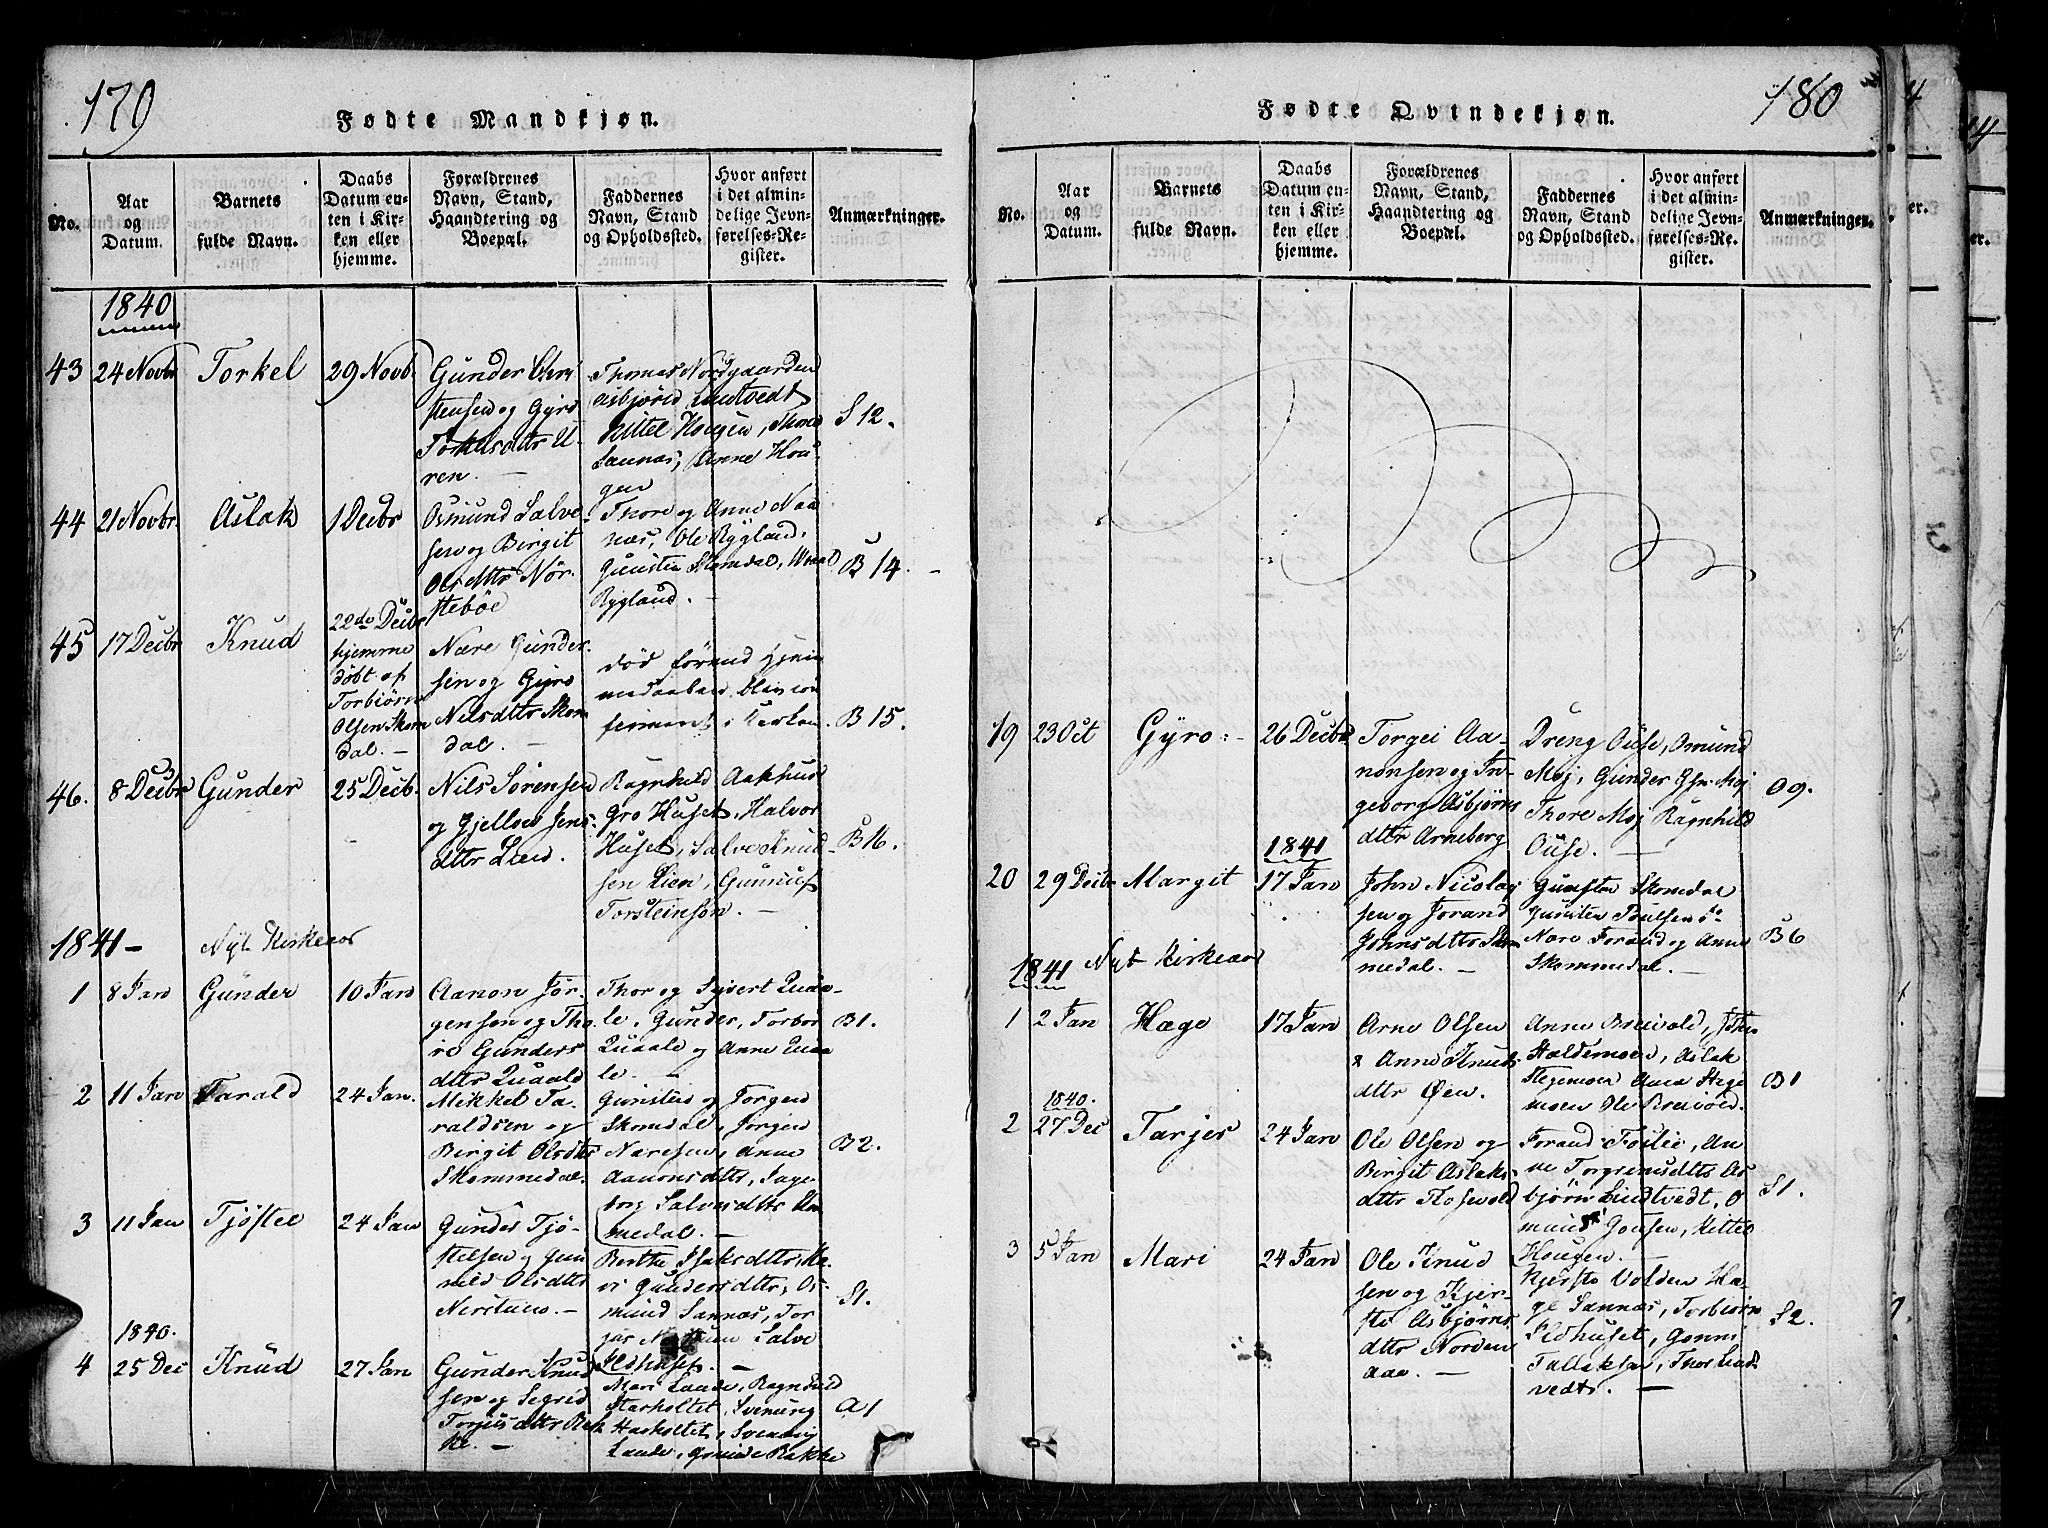 179
Fødte Mandkjøn.
No.
Aar
og
Datum.
Barnets
fulde Navn.
Daabs
Datum en-
ten i Kir-
ken eller
hjemme.
Forældrenes
Navn, Stand,
Haandtering og
Boepæl.
Faddernes
Navn, Stand
og Opholdssted.
Hvor anført
i det almin-
delige Jevn-
førelses-Re-
gister.
Anmærkninger.
1840
43 24 Novbr Torkel 29 Novb.
Gunder Chri
stensen og Gyro
U-
ren. —
Thomas Nordgaarden
Asbjørn Lindtvedt
Kittel Hougen, Thore
Sannæs, Anne Hou-
gen
S 12.
44 21 Novbr. Aslak 1 Decbr
Osmund Salve-
sen og Birgit
Olsdttr Nør-
stebøe
Thore og Anne Naa
næs, Ole Rygland,
Gunsten Skomdal,
Rygland. —
B 14. —
45 17 Decbr Knud
22de Decbr
hjemme
døbt af
Torbiørn
Olsen Skom
dal. —
Nære Gunder-
sen og Gyro
Nilsdttr Skom
dal. —
død førend Hjem
medaaben blev con
firmeret i Kirken.
B 15.
46. 8 Decbr Gunder 25 Decb.
Nils Sørensen
og Gjellou Jens-
dttr Lien.
Ragnhild Aakhus
Gro Huset, Halvor
Huset, Salve Knud-
sen Lien, Gunnuf
Torsteinsøn. —
B 16.
1841 — Nyt Kirkeaar
1 8 Jan Gunder 10 Jan
Aanon Jør-
gensen og Tho-
re Gunders
dttr Quaale
Thor og Sivert Quaa-
le, Gunder, Torbor
Quaale og Anne Quaa
le. —
B 1.
2 11 Jan Tarald 24 Jan.
Mikkel Ta-
raldsen og
Birgit Olsdttr
Skommedal.
Gunsteid og Jorgen
Skomdal, Jørgen
Naresen, Anne
Aanonsdttr, Inge
borg Salvesdttr
medal. —
B 2.
3 11 Jan Tjøstel 24 Jan
Gunder Tjø-
stelsen og Gun
nild Olsdttr
Nerstuen. —
Berthe Isaksdttr, Ka-
ri Gundersdttr, Os-
mund Sannæs, Tor
jus Salve
Ildhuset. —
S 1.
1840.
4 25 Dec Knud 27 Jan
Gunder Knud
sen og Segrid
Torjusdttr Bak
ke. —
Mari Laude, Ragnhild
Harholtet, Svenung
Harholtet, Svenung
Laude, Bakke
A 1
180
Fødte Qvindekjøn.
No.
Aar
og
Datum.
Barnets
fulde Navn.
Daabs
Datum en-
ten i Kir-
ken eller
hjemme.
Forældrenes
Navn, Stand,
Haandtering og
Boepæl.
Faddernes
Navn, Stand
og Opholdssted.
Hvor anført
i det almin-
delige Jevn-
førelses-Re-
gister.
Anmærkninger.
19 23 Oct Gyro 26 Decbr
Torgei Aa-
nonsen og In-
geborg Asbjørns
dttr Arneberg
Dreng Ouse, Osmund
Moj, Gunder Moj
Thore Moj Ragnhild
Ouse. —
O 9.
1841
20 29 Decbr Margit 17 Jan
John Nicolay
sen og Jorand
Johnsdttr Skom
medal. —
Gunsten Skomdal
Gunsten
Nare Jorand og Anne
Skommedal. —
B 6
1841 Nyt Kirkeaar
1 2 Jan Hæge 17 Jan
Arne Olsen
& Anne Knuds-
dttr Øen.
Anne Breivold,
Haldemoen, Aslak
Stegemoen Anne Stege
moen Ole Breivold.
B 1
1840.
2 27 Dec Tarjer 24 Jan
Ole Olsen og
Birgit Aslaks-
dttr Flosevold
Jorand An
ne As
bjørn Lindtvedt, O
mund Jonsen, Kittel
Hougen. —
S 1.
3 5 Jan Mari 24 Jan
Ole Knud
sen og Kjer-
sto Asbjørns
dttr Norden
aae. —
Kjersto Volden Hæ-
ge Sannæs, Torbiørn
Ildhuset, Gonni
Tallaksen, Thor Lind
vedt. —
S 2.